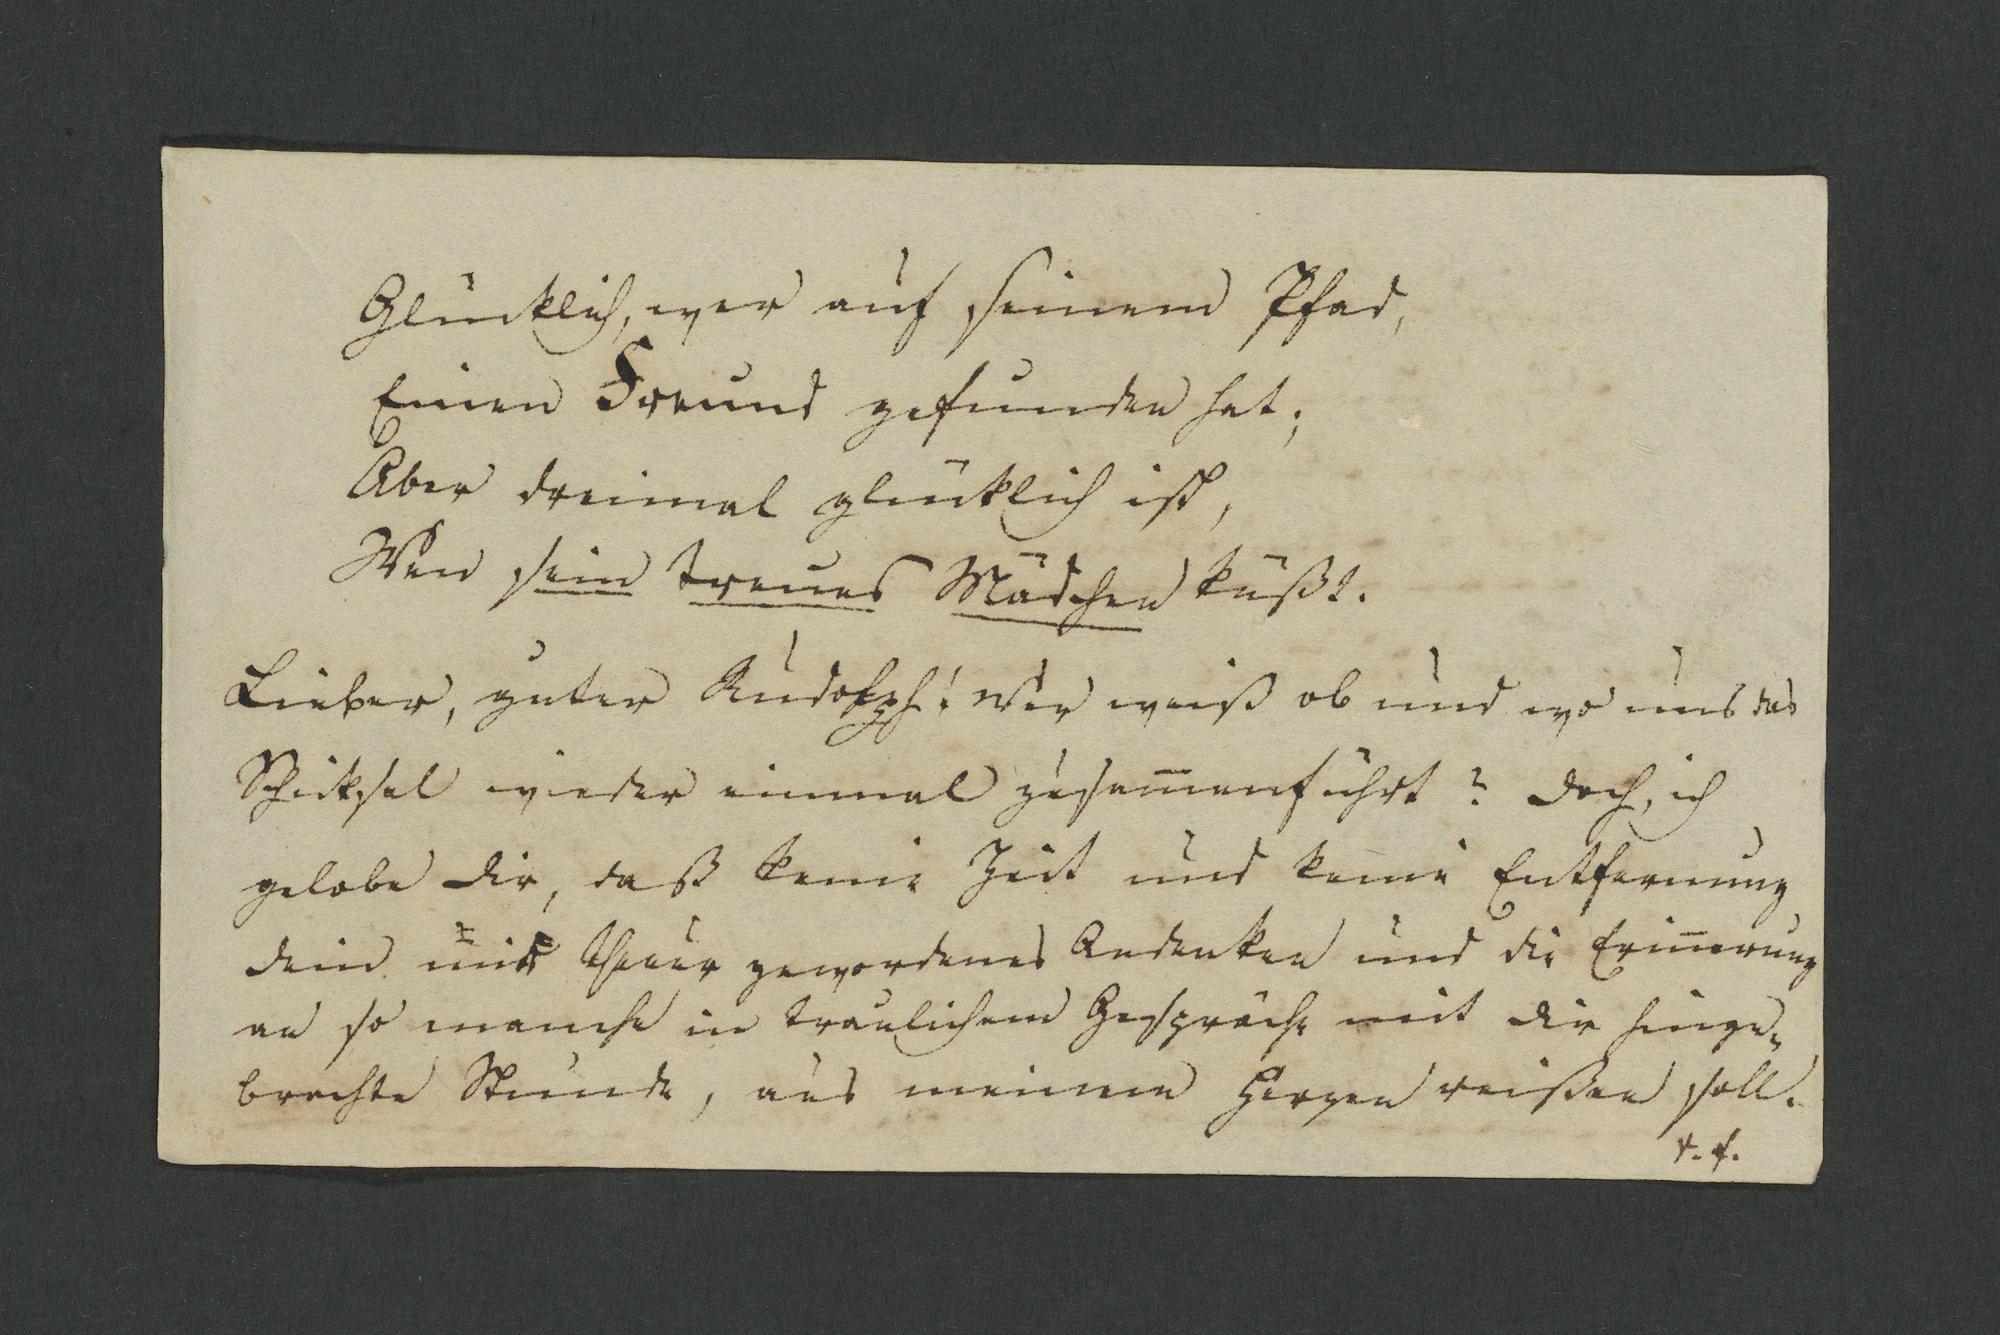 Glücklich, wer auf seinem Pfad,
Einen Freund gefunden hat;
Aber dreimal glücklich ist,
Wen sein treues Mädchen küßt.
Lieber, guter Rudolph! Wer weiß ob und wo uns das
Schicksal wieder einmal zusam̅enführt? Doch, ich
gelobe dir, daß keine Zeit und keine Entfernung
dein mir theuer gewordenes Andenken und die Erin̅erung
an so manche in traulichem Gespräche mit dir hinge-
brachte Stunde, aus meinem Herzen reißen soll.
v. s.